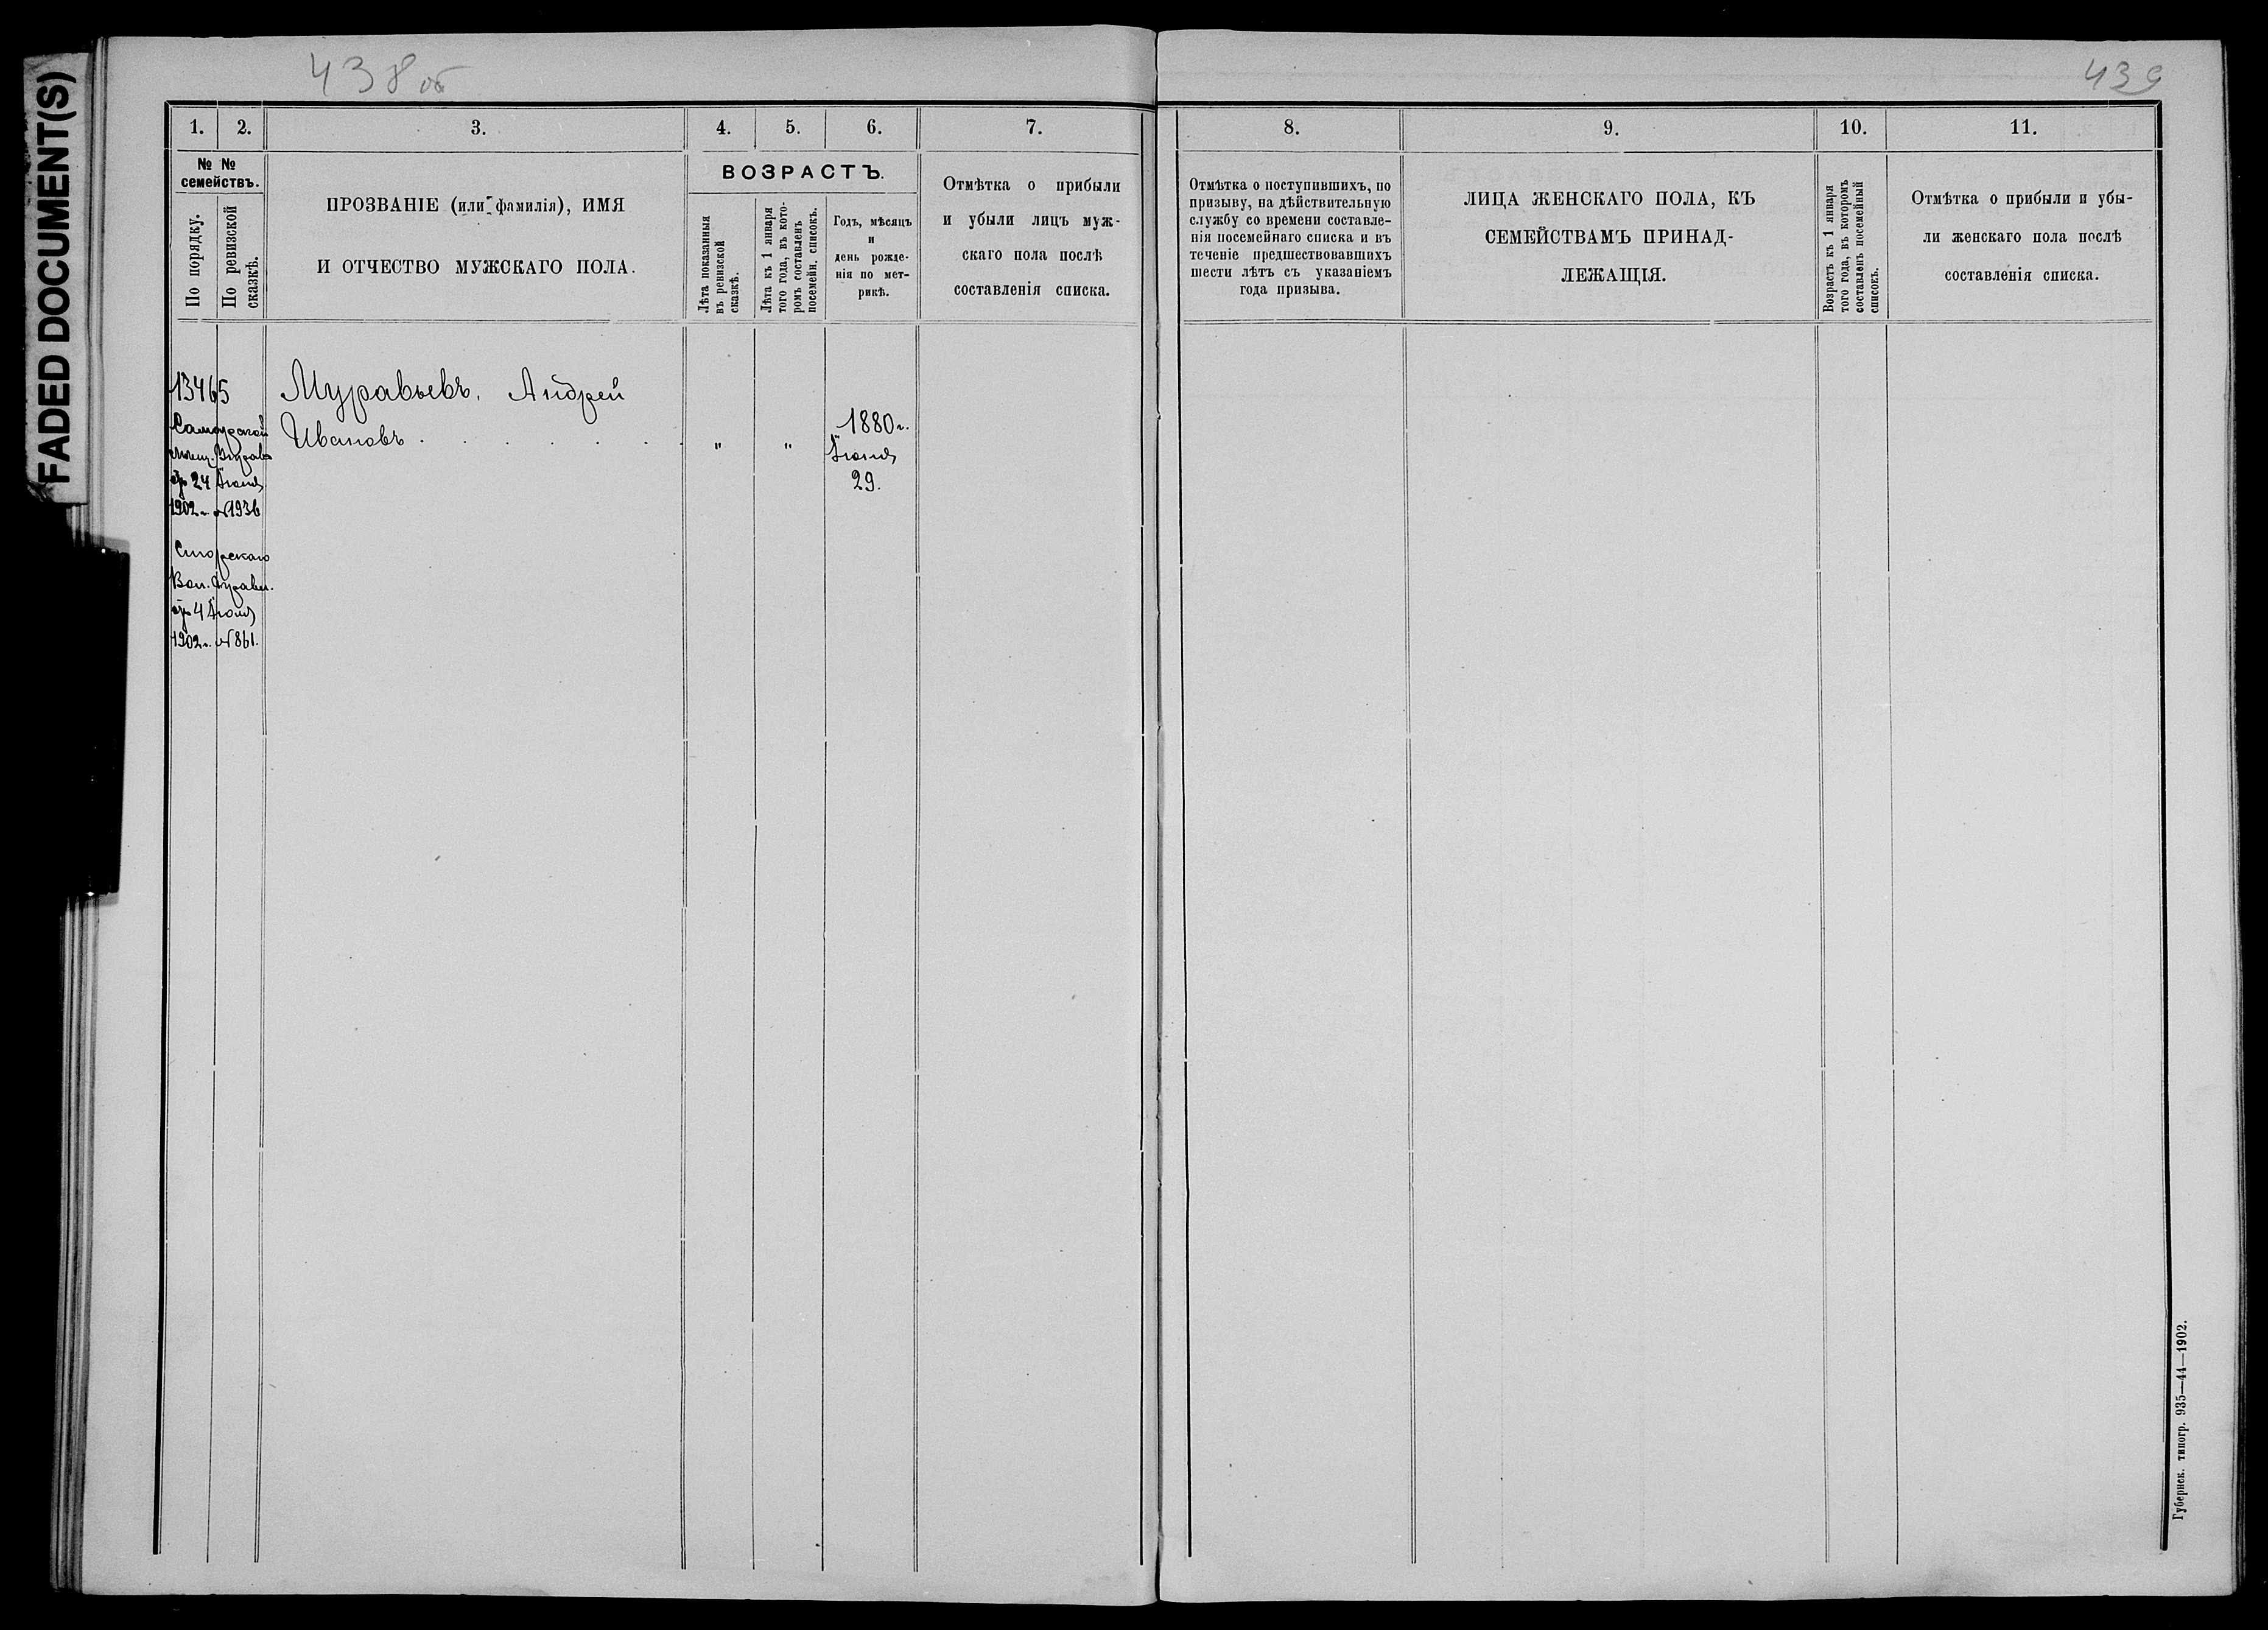 FADED DOCUMENT(S)
438 об
439
1. 2. 3. 4. 5. 6. 7.
№ №
семействъ.
По порядку.
По ревизской
сказкѣ.
ПРОЗВАНІЕ (или фамилія), ИМЯ
И ОТЧЕСТВО МУЖСКАГО ПОЛА.
ВОЗРАСТЪ.
Лѣта показанныя
въ ревизской
сказкѣ.
Лѣта къ 1 января
того года, въ кото-
ромъ составленъ
посемейн. списокъ.
Годъ, мѣсяцъ
и
день рожде-
нія по мет-
рикѣ.
Отмѣтка о прибыли
и убыли лицъ муж-
скаго пола послѣ
составленія списка.
8. 9. 10. 11.
Отмѣтка о поступившихъ, по
призыву, на дѣйствительную
службу со времени составле-
нія посемейнаго списка и въ
теченіе предшествовавшихъ
шести лѣтъ съ указаніемъ
года призыва.
ЛИЦА ЖЕНСКАГО ПОЛА, КЪ
СЕМЕЙСТВАМЪ ПРИНАД-
ЛЕЖАЩІЯ.
Возрастъ къ 1 января
того года, въ которомъ
составленъ посемейный
списокъ.
Отмѣтка о прибыли и убы-
ли женскаго пола послѣ
составленія списка.
13465
Муравьевъ, Андрей
Ивановъ . . . . . . „ „
1880 г.
Іюня
29.
Самарской
мѣщ. Управы
24 Іюня
1902 г. №1936
Вол. Правл.
4 Іюля
1902 г. №861.
Губернск. типогр. 935—44—1902.